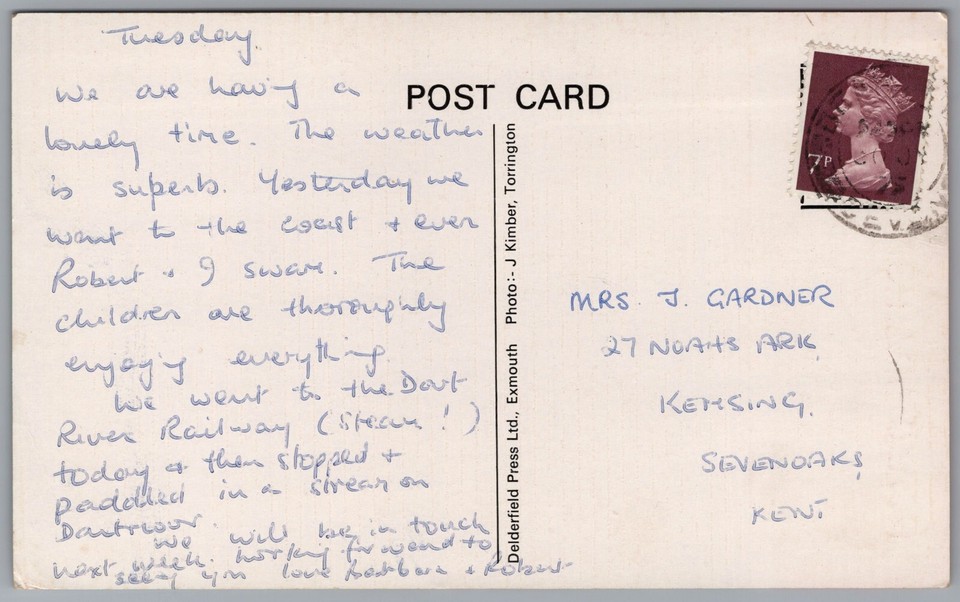 Tuesday.
We are having a
lovely time. The weather
is superb. Yesterday we
went to the coast + even
Robert + I swam. The
children are thoroughly
enjoying everything.
We went to the Dart
River Railway (Steam!)
today & then stopped +
paddled in a stream on
Dartmoor.
We will be in touch
next week. Looking forward to
seeing you love Barbara + Robert
POST CARD
Delderfield Press Ltd., Exmouth Photo:- J Kimber, Torrington
7P
MRS. J. GARDNER
27 NOAHS ARK
KEMSING.
SEVENOAKS
KENT